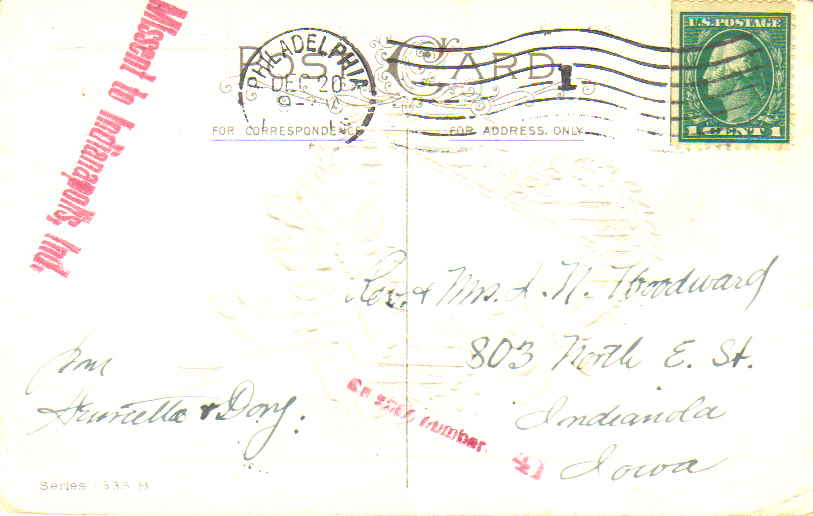 Missent to Indianapolis, Ind.
POST CARD
PHILADELPHIA
DEC 20
1
U.S. POSTAGE
1 CENT 1
FOR CORRESPONDENCE
FOR ADDRESS ONLY
Rev. & Mrs. N. Woodward
803 North E. St.
Indianola
Iowa
From
Henrietta & Dory.
number 41
Series 333 B